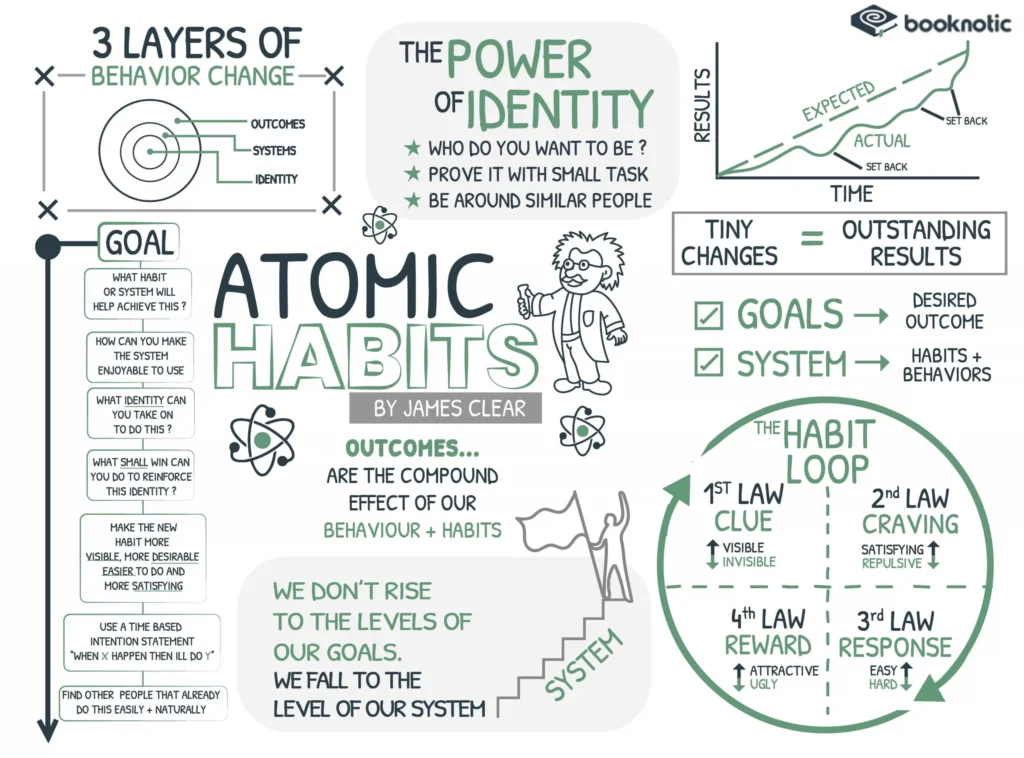 booknotic
3 LAYERS OF
BEHAVIOR CHANGE
OUTCOMES
SYSTEMS
IDENTITY
THE POWER
OF IDENTITY
WHO DO YOU WANT TO BE ?
PROVE IT WITH SMALL TASK
BE AROUND SIMILAR PEOPLE
RESULTS
EXPECTED
ACTUAL
SET BACK
SET BACK
TIME
TINY
CHANGES
=
OUTSTANDING
RESULTS
GOALS → DESIRED
OUTCOME
SYSTEM → HABITS +
BEHAVIORS
GOAL
WHAT HABIT
OR SYSTEM WILL
HELP ACHIEVE THIS ?
HOW CAN YOU MAKE
THE SYSTEM
ENJOYABLE TO USE
WHAT IDENTITY CAN
YOU TAKE ON
TO DO THIS ?
WHAT SMALL WIN CAN
YOU DO TO REINFORCE
THIS IDENTITY ?
MAKE THE NEW
HABIT MORE
VISIBLE, MORE DESIRABLE
EASIER TO DO AND
MORE SATISFYING
USE A TIME BASED
INTENTION STATEMENT
"WHEN X HAPPEN THEN ILL DO Y"
FIND OTHER PEOPLE THAT ALREADY
DO THIS EASILY + NATURALLY
ATOMIC
HABITS
BY JAMES CLEAR
OUTCOMES...
ARE THE COMPOUND
EFFECT OF OUR
BEHAVIOUR + HABITS
WE DON'T RISE
TO THE LEVELS OF
OUR GOALS.
WE FALL TO THE
LEVEL OF OUR SYSTEM
SYSTEM
THE HABIT
LOOP
1ST LAW
CLUE
VISIBLE
INVISIBLE
2nd LAW
CRAVING
SATISFYING
REPULSIVE
4th LAW
REWARD
ATTRACTIVE
UGLY
3rd LAW
RESPONSE
EASY
HARD